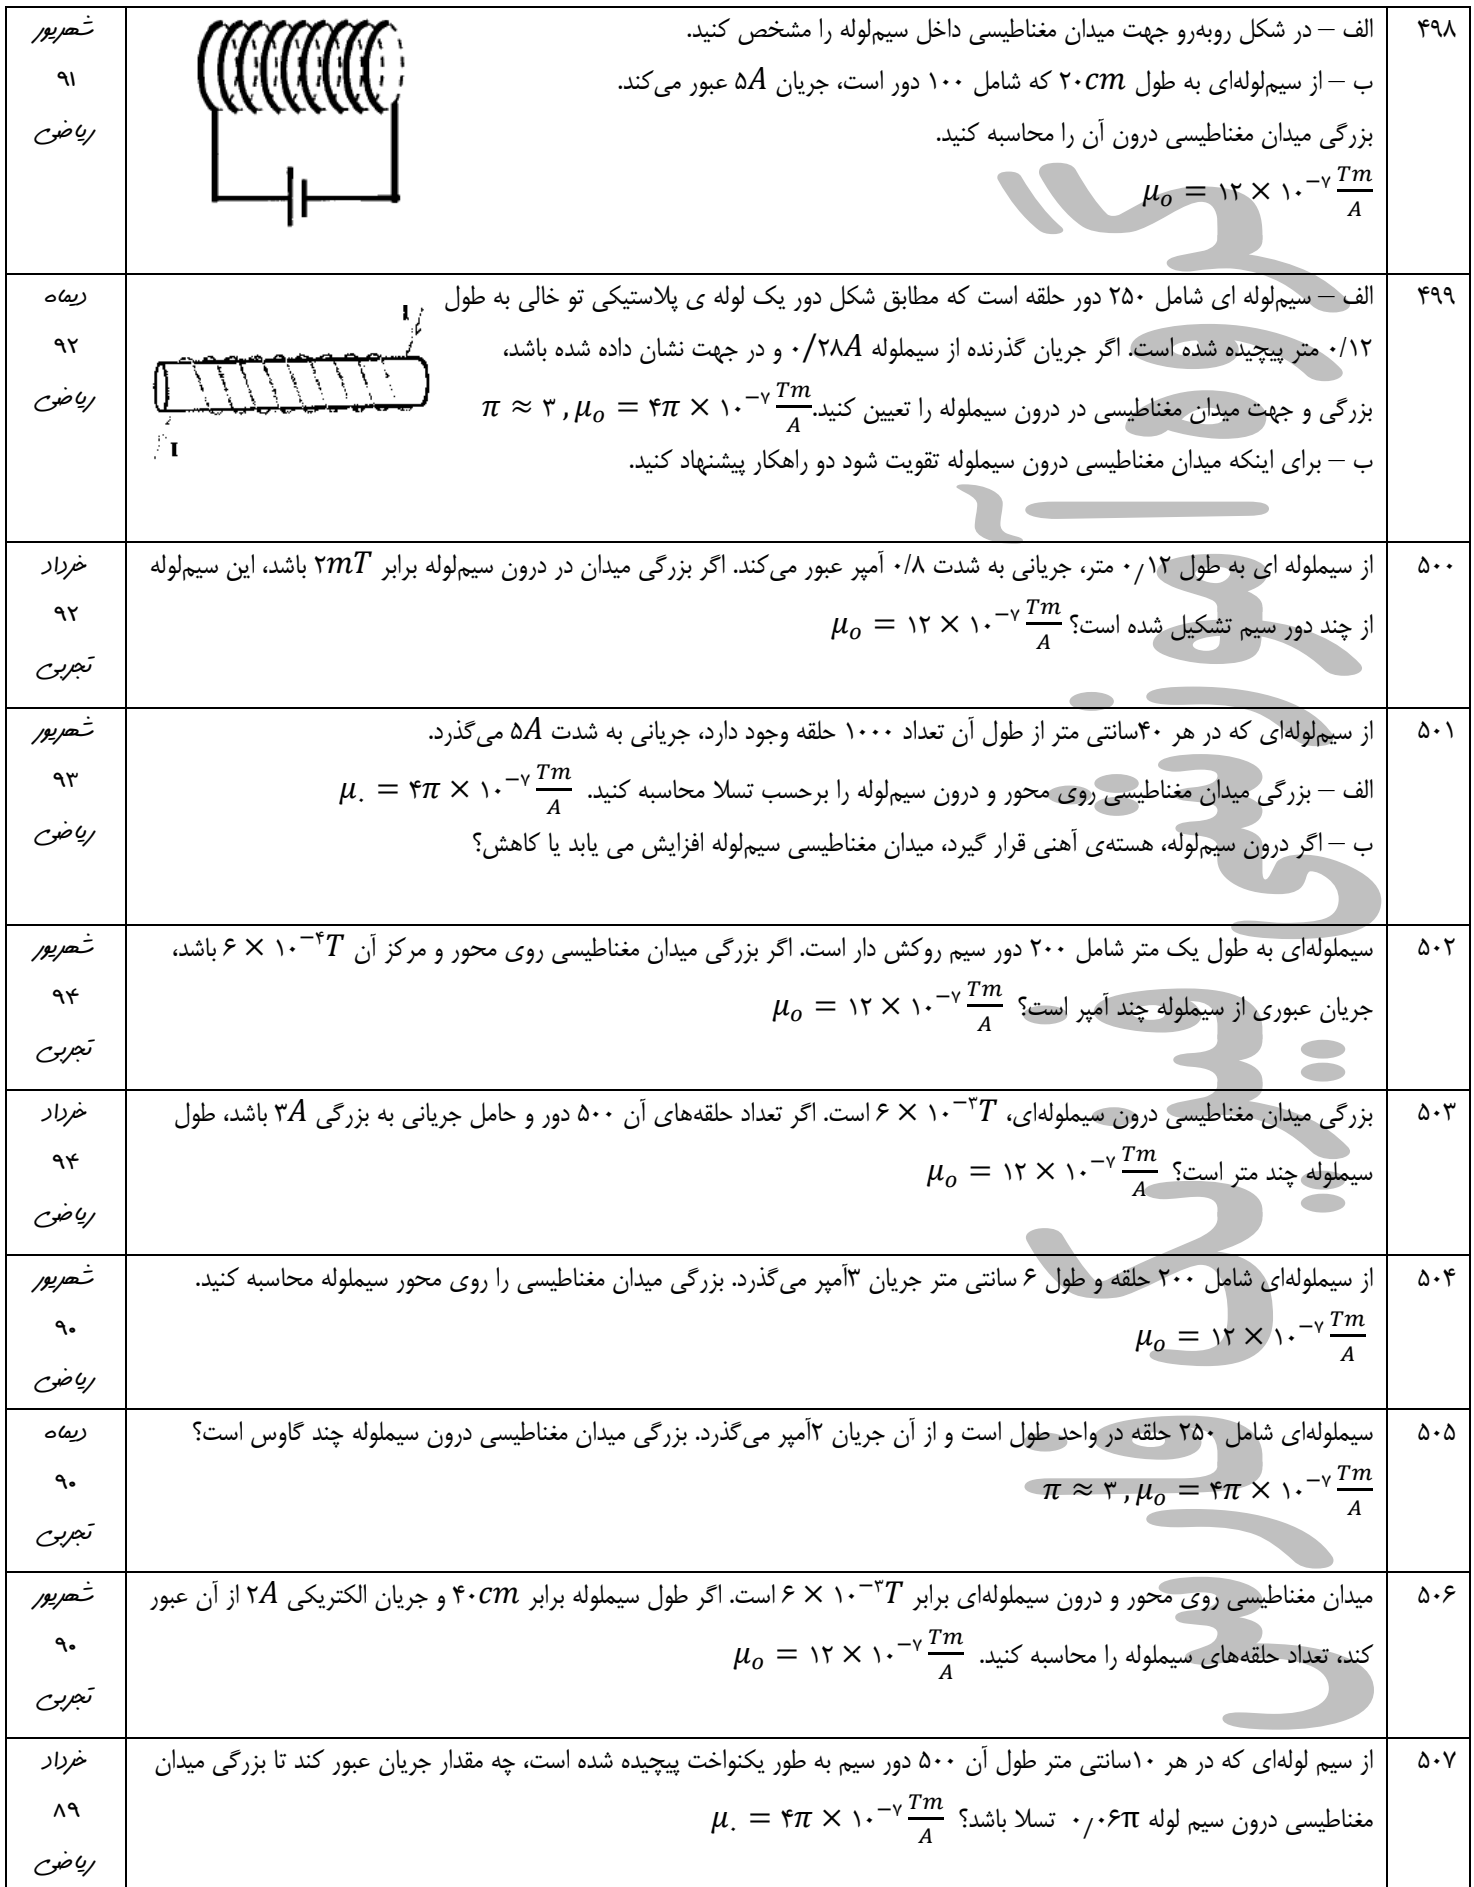 ۴۹۸
الف – در شکل روبه‌رو جهت میدان مغناطیسی داخل سیم‌لوله را مشخص کنید.
ب – از سیم‌لوله‌ای به طول ۲۰cm که شامل ۱۰۰ دور است، جریان ۵A عبور می‌کند.
بزرگی میدان مغناطیسی درون آن را محاسبه کنید.
μₒ = ۱۲ × ۱۰⁻⁷ Tm/A
شهریور
۹۱
ریاضی
۴۹۹
الف – سیم‌لوله ای شامل ۲۵۰ دور حلقه است که مطابق شکل دور یک لوله ی پلاستیکی تو خالی به طول
۰/۱۲ متر پیچیده شده است. اگر جریان گذرنده از سیملوله ۰/۲۸A و در جهت نشان داده شده باشد،
بزرگی و جهت میدان مغناطیسی در درون سیملوله را تعیین کنید. π ≈ ۳ , μₒ = ۴π × ۱۰⁻⁷ Tm/A
ب – برای اینکه میدان مغناطیسی درون سیملوله تقویت شود دو راهکار پیشنهاد کنید.
I
I
دیماه
۹۲
ریاضی
۵۰۰
از سیملوله ای به طول ۰/۱۲ متر، جریانی به شدت ۰/۸ آمپر عبور می‌کند. اگر بزرگی میدان در درون سیم‌لوله برابر ۲mT باشد، این سیم‌لوله
از چند دور سیم تشکیل شده است؟ μₒ = ۱۲ × ۱۰⁻⁷ Tm/A
خرداد
۹۲
تجربی
۵۰۱
از سیم‌لوله‌ای که در هر ۴۰سانتی متر از طول آن تعداد ۱۰۰۰ حلقه وجود دارد، جریانی به شدت ۵A می‌گذرد.
الف – بزرگی میدان مغناطیسی روی محور و درون سیم‌لوله را برحسب تسلا محاسبه کنید. μ. = ۴π × ۱۰⁻⁷ Tm/A
ب – اگر درون سیم‌لوله، هسته‌ی آهنی قرار گیرد، میدان مغناطیسی سیم‌لوله افزایش می یابد یا کاهش؟
شهریور
۹۳
ریاضی
۵۰۲
سیملوله‌ای به طول یک متر شامل ۲۰۰ دور سیم روکش دار است. اگر بزرگی میدان مغناطیسی روی محور و مرکز آن ۶ × ۱۰⁻⁴T باشد،
جریان عبوری از سیملوله چند آمپر است؟ μₒ = ۱۲ × ۱۰⁻⁷ Tm/A
شهریور
۹۴
تجربی
۵۰۳
بزرگی میدان مغناطیسی درون سیملوله‌ای، ۶ × ۱۰⁻³T است. اگر تعداد حلقه‌های آن ۵۰۰ دور و حامل جریانی به بزرگی ۳A باشد، طول
سیملوله چند متر است؟ μₒ = ۱۲ × ۱۰⁻⁷ Tm/A
خرداد
۹۴
ریاضی
۵۰۴
از سیملوله‌ای شامل ۲۰۰ حلقه و طول ۶ سانتی متر جریان ۳آمپر می‌گذرد. بزرگی میدان مغناطیسی را روی محور سیملوله محاسبه کنید.
μₒ = ۱۲ × ۱۰⁻⁷ Tm/A
شهریور
۹۰
ریاضی
۵۰۵
سیملوله‌ای شامل ۲۵۰ حلقه در واحد طول است و از آن جریان ۲آمپر می‌گذرد. بزرگی میدان مغناطیسی درون سیملوله چند گاوس است؟
π ≈ ۳ , μₒ = ۴π × ۱۰⁻⁷ Tm/A
دیماه
۹۰
تجربی
۵۰۶
میدان مغناطیسی روی محور و درون سیملوله‌ای برابر ۶ × ۱۰⁻³T است. اگر طول سیملوله برابر ۴۰cm و جریان الکتریکی ۲A از آن عبور
کند، تعداد حلقه‌های سیملوله را محاسبه کنید. μₒ = ۱۲ × ۱۰⁻⁷ Tm/A
شهریور
۹۰
تجربی
۵۰۷
از سیم لوله‌ای که در هر ۱۰سانتی متر طول آن ۵۰۰ دور سیم به طور یکنواخت پیچیده شده است، چه مقدار جریان عبور کند تا بزرگی میدان
مغناطیسی درون سیم لوله ۰/۰۶π تسلا باشد؟ μ. = ۴π × ۱۰⁻⁷ Tm/A
خرداد
۸۹
ریاضی